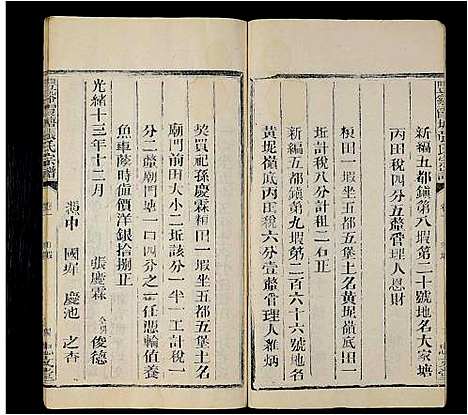 新編五都鎮第八瑕第二十號地名大家塘
丙田稅四分五釐管理人恩財
一榎田一瑕坐五都五堡土名黃坭嶺底田二
坵計稅八分計租二石正
新編五都鎮第九瑕第二百六十六號地名
黃坭嶺底丙田稅六分壹釐管理人雜炳
一契買祀孫慶霖糧田一瑕坐五都五堡土名
廟門前田大小二坵該分一半一工計稅一
分二釐廟門塘一口四分之一任憑輪值養
魚車蔭時值價洋銀拾捌正
光緒十三年十二月 張慶霖 仝男 俊德
憑中 國墀 慶池 之杏